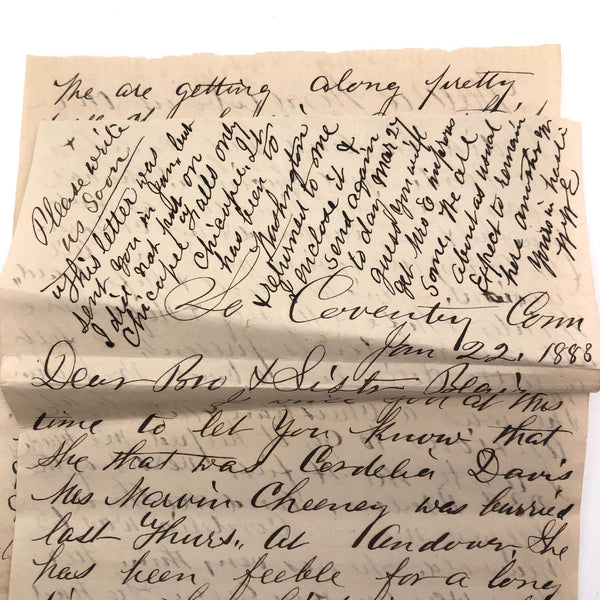 We are getting along pretty
Please write
us soon
This letter was
sent you in Jan, but
I did not put on
Chicopee Falls only
Chicopee. It
has been to
Washington
& returned to me
I enclose it &
send again
to day Mar 27
guess you will
get Mrs E improves
some. We all
about as usual
Expect to remain
here another yr
Yours in haste
So Coventry Conn
Jan 22, 1888
Dear Bro & Sister Blair
I write you at this
time to let you know that
She that was Cordelia Davis
Mrs Marvin Cheeney was burried
last Thurs,, at Andover, She
has been feeble for a long